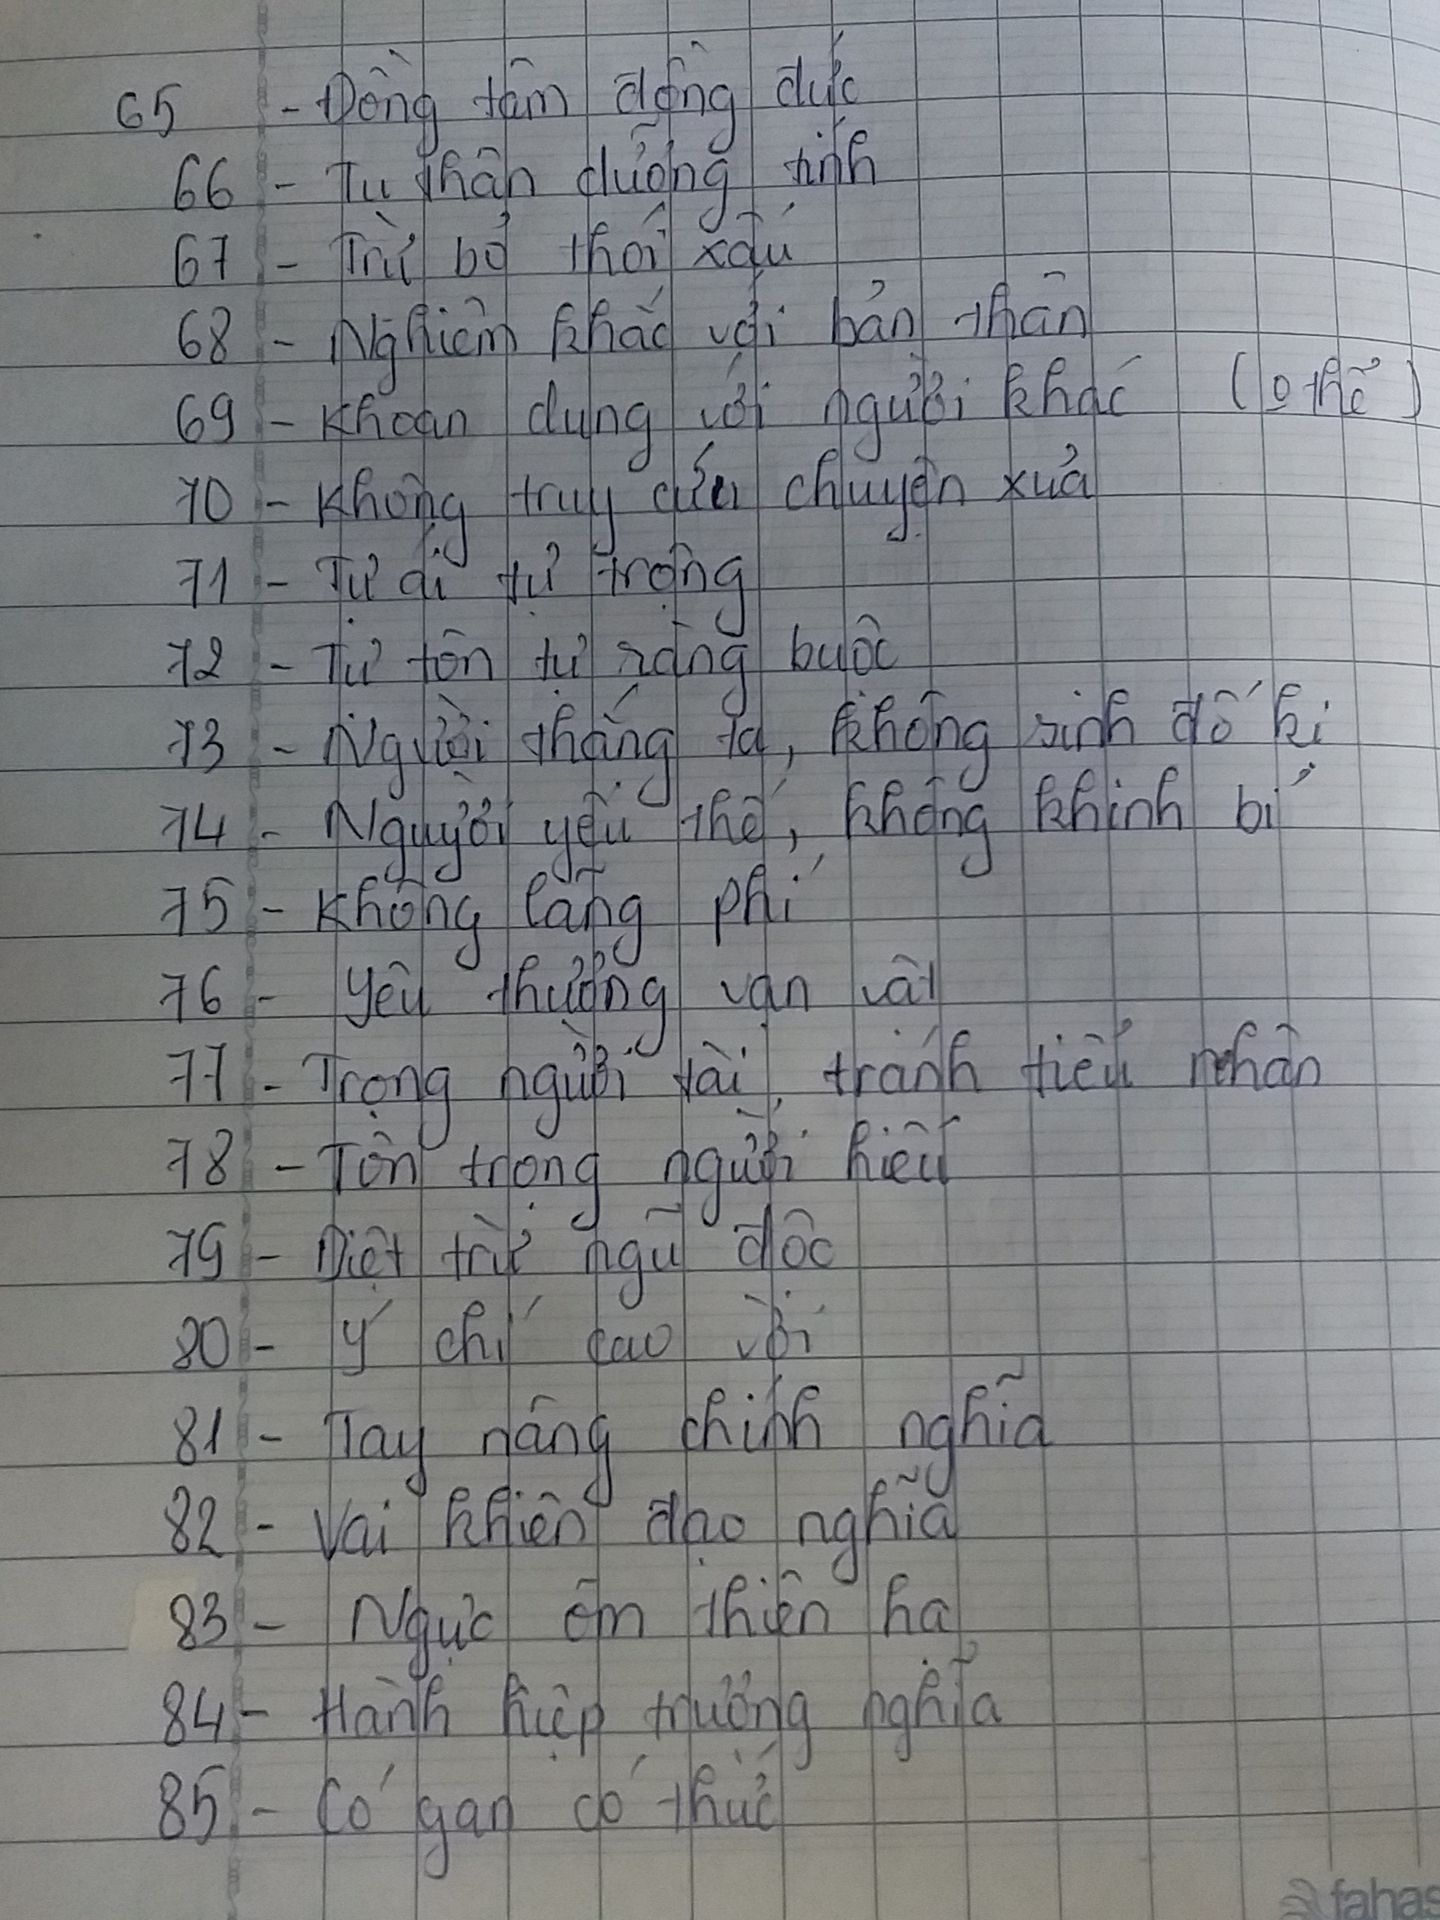 65 - Đồng tâm đồng đức
66 - Tu thân dưỡng tính
67 - Trừ bỏ thói xấu
68 - Nghiêm khắc với bản thân
69 - Khoan dung với người khác (0 thể)
70 - Không truy cứu chuyện xưa
71 - Tự ái tự trọng
72 - Tự tôn tự ràng buộc
73 - Người thắng ta, không sinh đố kị
74 - Người yếu thế, không khinh bỉ
75 - Không lãng phí
76 - Yêu thương vạn vật
77 - Trọng người tài, tránh tiểu nhân
78 - Tôn trọng người hiếu
79 - Diệt trừ ngũ độc
80 - Ý chí cao vời
81 - Tay nâng chính nghĩa
82 - Vai khiên đạo nghĩa
83 - Ngực ôm thiên hạ
84 - Hành hiệp trượng nghĩa
85 - Có gan có thức
fahas